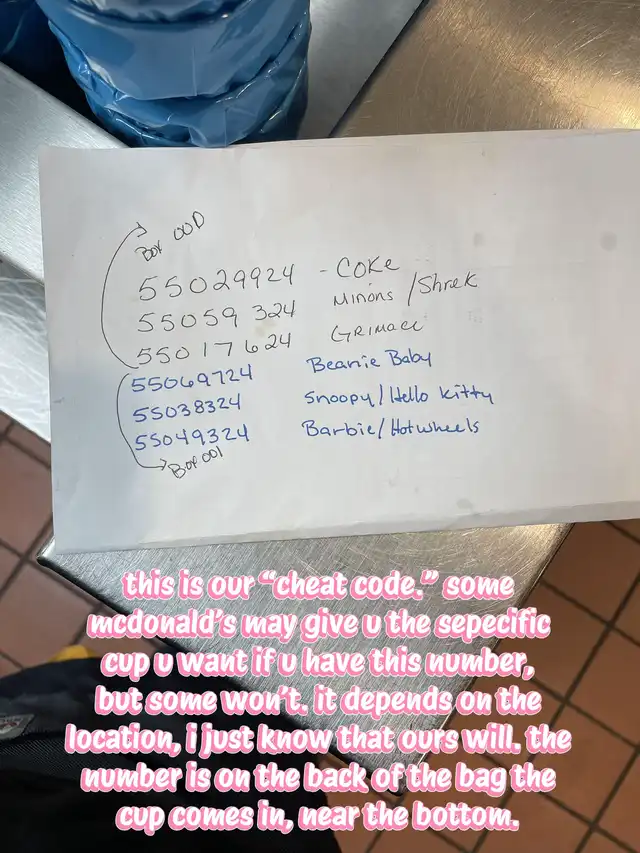 Box 00D
55029924 - COKE
55059 324 Minons / Shrek
55017624 GRIMACE
55069724 Beanie Baby
55038324 Snoopy / Hello Kitty
55049324 Barbie / Hotwheels
Box 001
this is our “cheat code.” some
mcdonald’s may give u the sepecific
cup u want if u have this number,
but some won’t. it depends on the
location, i just know that ours will. the
number is on the back of the bag the
cup comes in, near the bottom.